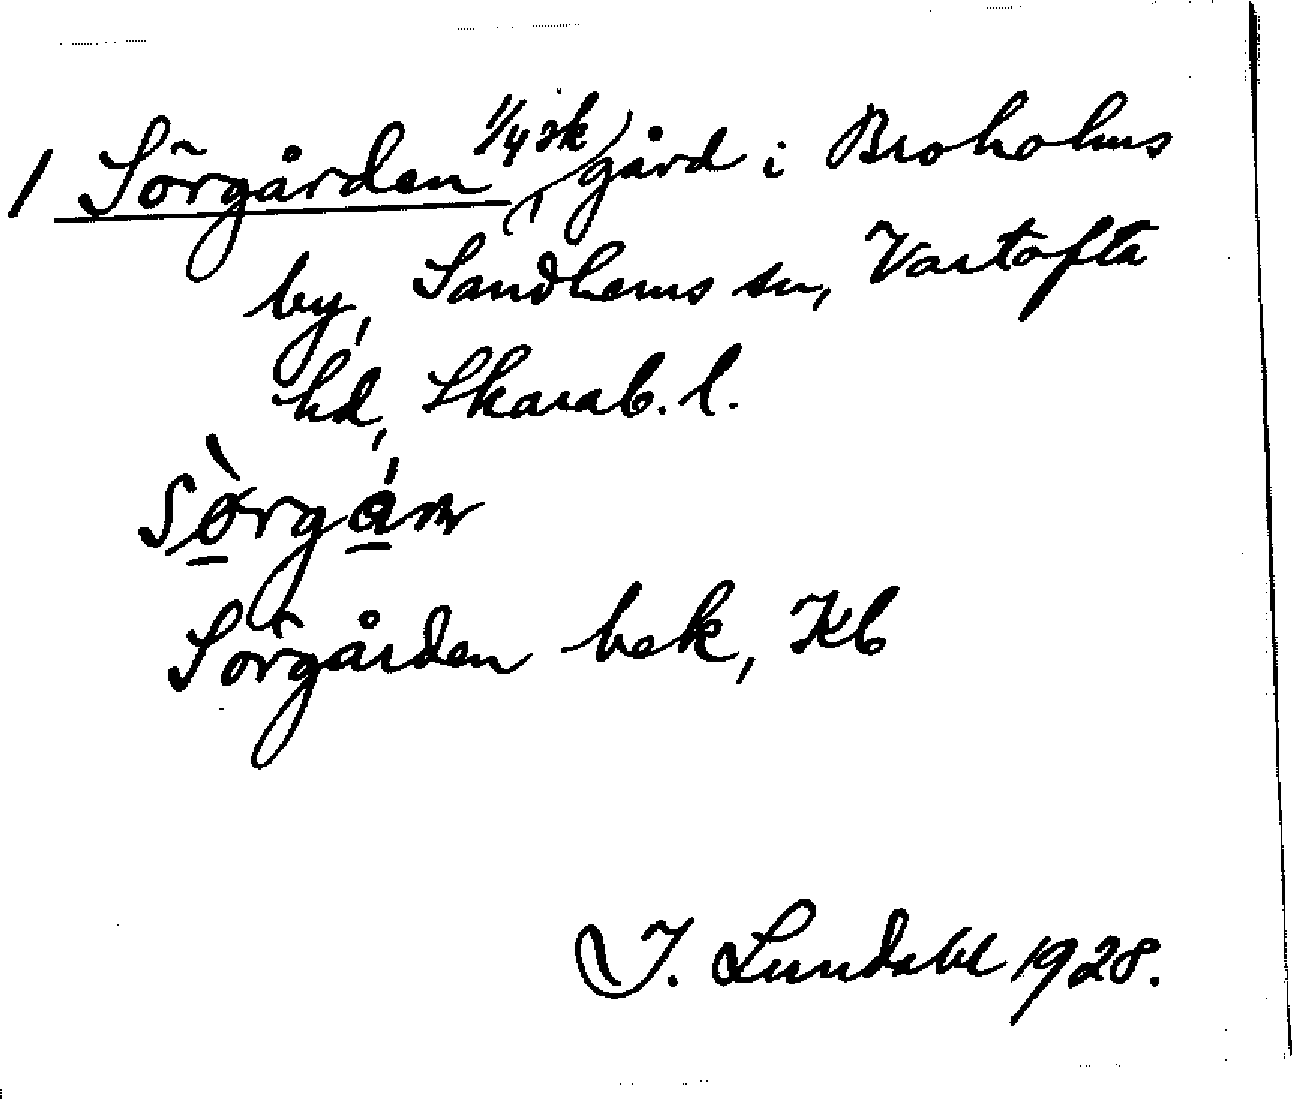 1 Sörgården 1/4 sk gård i Broholms
by, Sandhems sn, Vartofta
hd, Skarab. l.
Sörgården bek, Kb
I. Lundahl 1928.